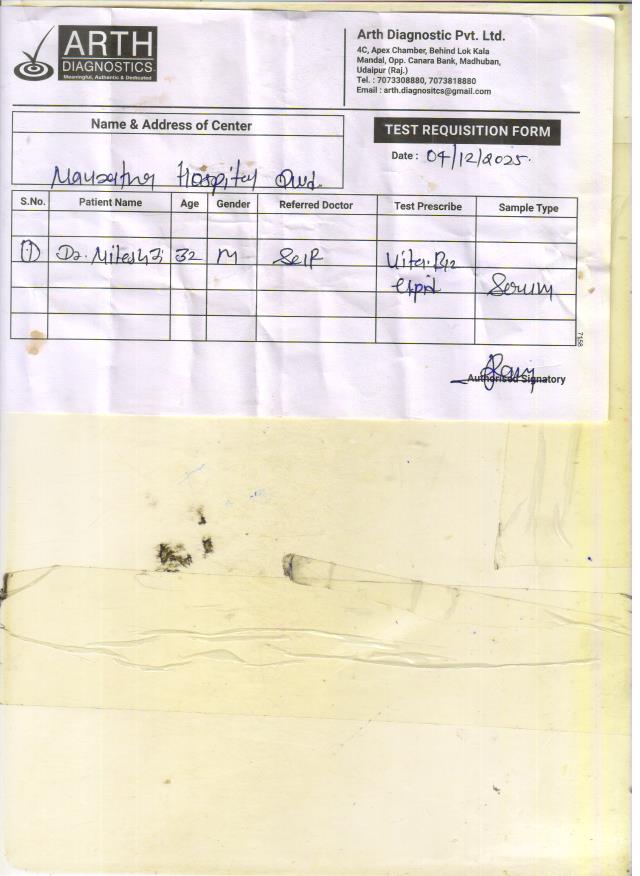 ARTH
DIAGNOSTICS
Meaningful, Authentic & Dedicated
Arth Diagnostic Pvt. Ltd.
4C, Apex Chamber, Behind Lok Kala
Mandal, Opp. Canara Bank, Madhuban,
Udaipur (Raj.)
Tel. : 7073308880, 7073818880
Email : arth.diagnositcs@gmail.com
Name & Address of Center
TEST REQUISITION FORM
Date : 04/12/2025.
Hospital
S.No. Patient Name Age Gender Referred Doctor Test Prescribe Sample Type
1 Dr. Mitesh Ji 32 M Self Vita. B12
Lipid Serum
7158
Authorised Signatory